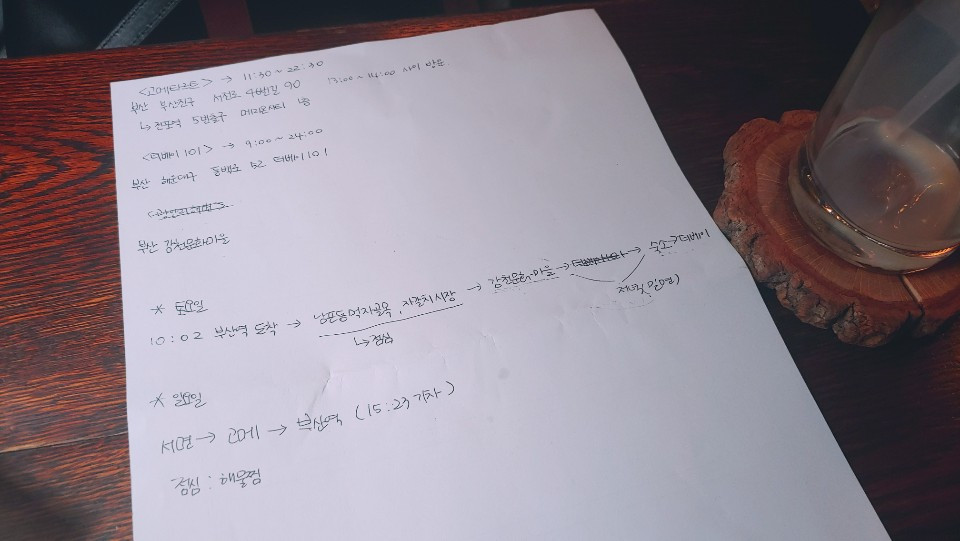 <고메타르트> → 11:30 ~ 22:30
부산 부산진구 서전로 46번길 90 13:00 ~ 14:00 사이 방문
↳ 전포역 5번출구
<더베이 101> → 9:00 ~ 24:00
부산 해운대구 동백로 52 더베이 101
부산 감천문화마을
* 토요일
10:02 부산역 도착 → 남포동 먹자골목, 자갈치시장 → 감천문화마을 → → 숙소 → 더베이
↳ 점심
저녁
* 일요일
서면 → 고메 → 부산역 (15:23 기차)
점심 : 해물찜